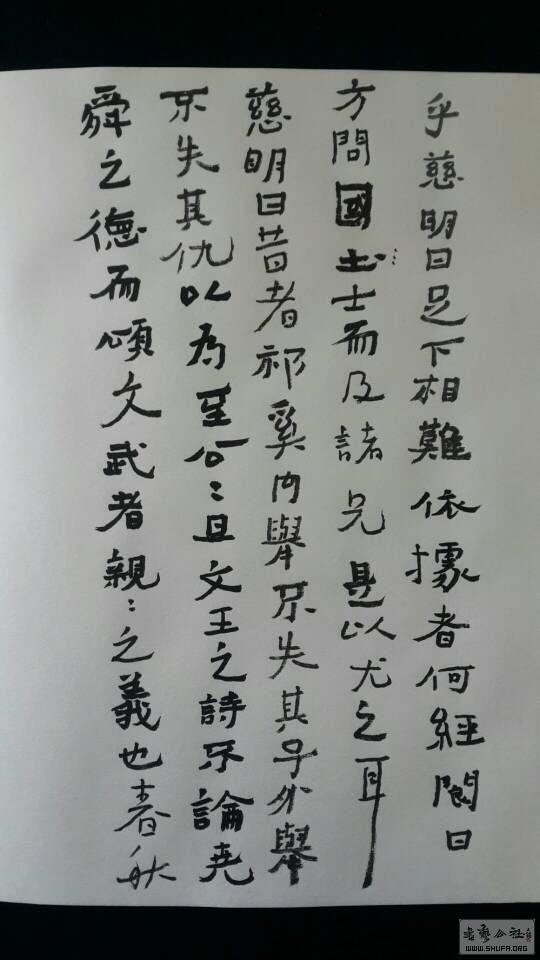 乎慈明曰足下相難依據者何經閬曰
方問國士士而及諸兄是以尤之耳
慈明曰昔者祁奚內舉不失其子外舉
不失其仇以為至公：旦文王之詩不論堯
舜之德而頌文武者親：之義也春秋
WWW.SHUFA.ORG